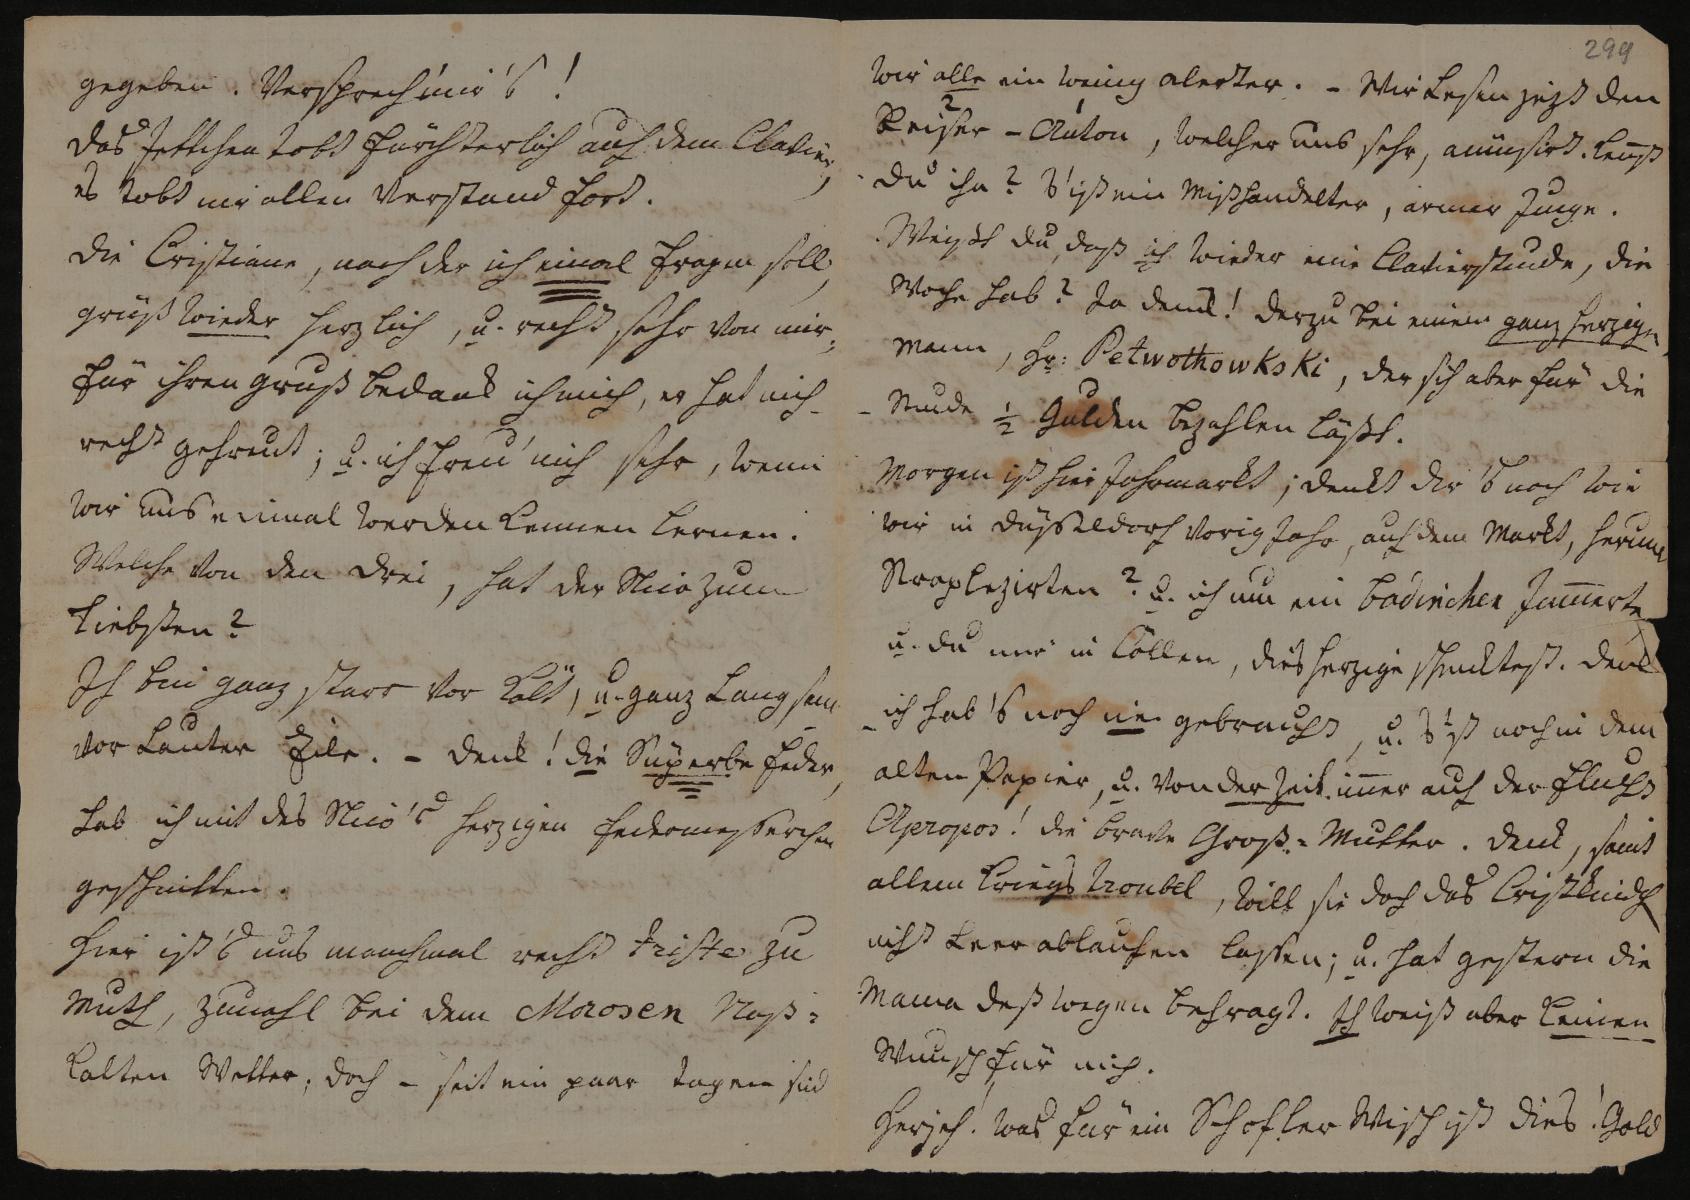 gegeben. Versprech' mir's!
Das Jettchen tobt fürchterlich auf dem Clavier,
es tobt mir allen Verstand fort.
Die Cristiane, nach der ich einmal fragen soll,
grüß wieder herzlich, u. recht sehr von mir,
für ihren Gruß bedank ich mich, er hat mich
recht gefreut; u. ich freu' mich sehr, wenn
wir uns einmal werden kennen lernen.
Welche von den Drei, hat der Nico zum
Liebsten?
Ich bin ganz starr vor Kält, u. ganz langsam
vor lauter Eile. – Denk! die Süperbe Feder,
hab ich mit des Nico's herzigen Federmesserchen
geschnitten.
Hier ist's uns manchmal recht triste zu
Muth, zumahl bei dem Morosen Naß=
kalten Wetter; doch – seit ein paar Tagen sind
299
wir alle ein wenig alerter. – Wir Lesen jezt den
Reiser – Anton, welcher uns sehr, amüsirt. Kennst
du ihn? S'ist ein Mißhandelter, armer Junge.
Weißt du, daß ich wieder eine Clavierstunde, die
Woche hab? Ja denk! Derzu bei einem ganz herzigen
Mann, Hr: Petwothowkski, der sich aber für die
Stunde ½ Gulden bezahlen läßt.
Morgen ist hier Jahrmarkt; denkt dir's noch wie
wir in Düsseldorf vorig Jahr, auf dem Markt, herum
Straplezirten? u. ich um ein badinchen Jammerte
u. du mir in Cöllen, dies herzige schenktest. Denk
ich hab's noch nie gebraucht, u. S'ist noch in dem
alten Papier, u. von der Zeit immer auf der Flucht
Apropos! die brave Groß=Mutter. Denk, samt
allem Kriegs Troubel, will sie doch das Cristkindch
nicht leer ablaufen lassen; u. hat gestern die
Mama deßwegen befragt. Ich weiß aber keinen
Wunsch für mich.
Herjeh! was für ein Schofler Wisch ist dies! Gold